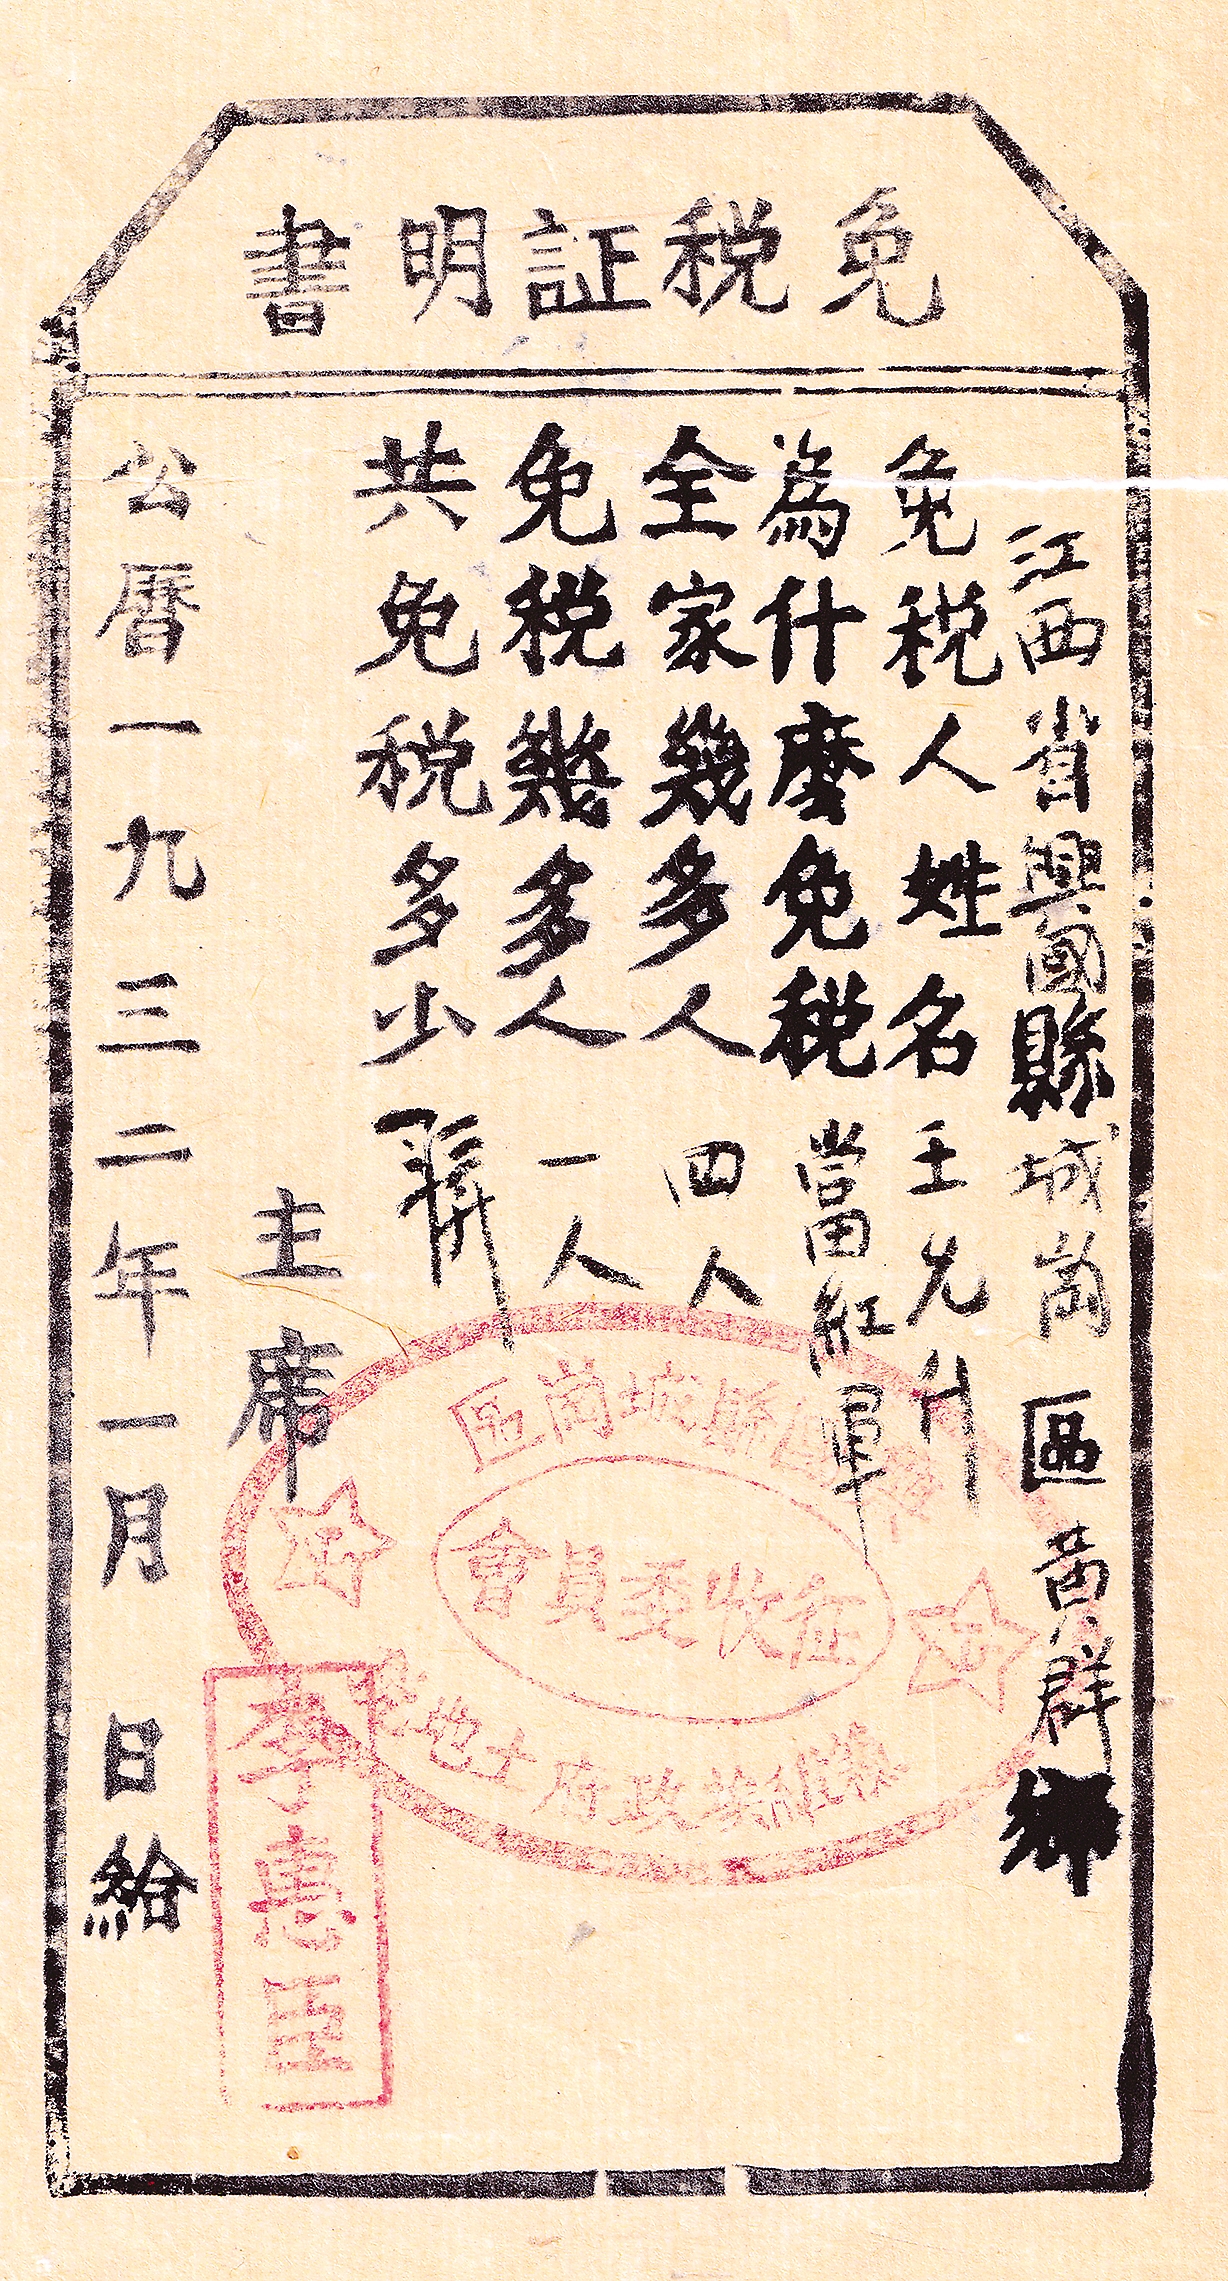 免税証明書
江西省興國縣城崗區黄群鄉
免税人姓名王先升
為什麽免税當紅軍
全家幾多人四人
免税幾多人一人
共免税多少
主席
公曆一九三二年一月 日給
縣城崗區
征收委員會
蘇維埃政府土地
李惠臣